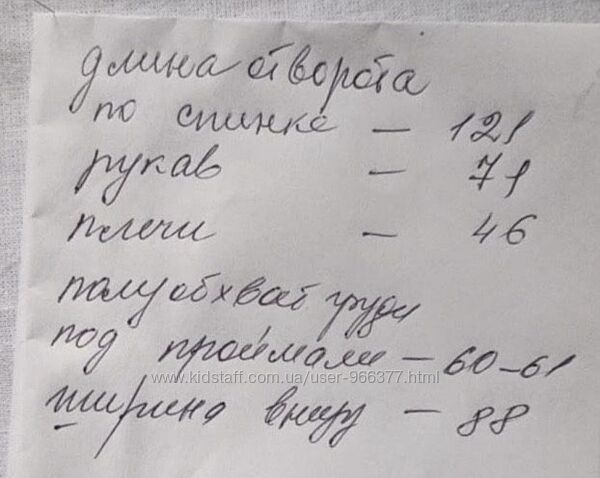 длина отворота
по спинке – 121
рукав – 71
плечи – 46
полуобхват груди
под проймами – 60–61
www.kidstaff.com.ua/user-966377.html
ширина внизу – 88